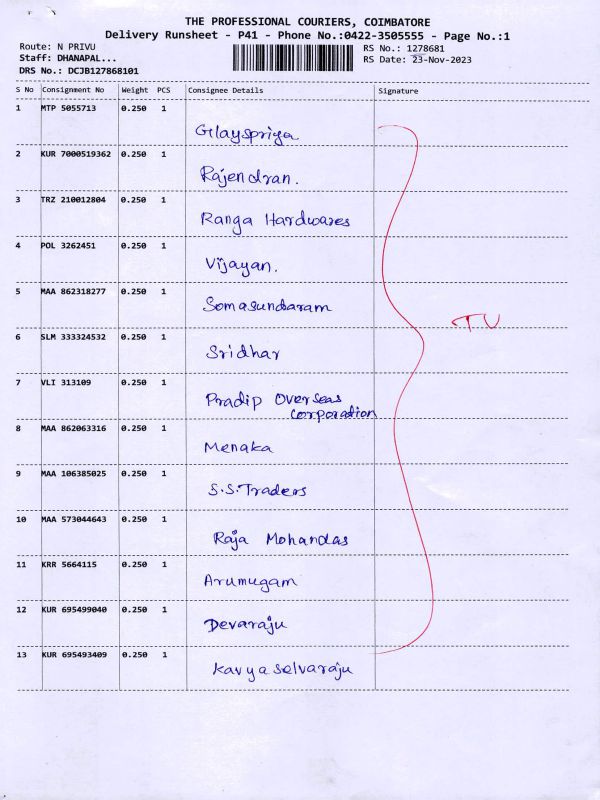 THE PROFESSIONAL COURIERS, COIMBATORE
Delivery Runsheet - P41 - Phone No.:0422-3505555 - Page No.:1
Route: N PRIVU RS No.: 1278681
Staff: DHANAPAL... RS Date: 23-Nov-2023
DRS No.: DCJB127868101
S No Consignment No Weight PCS Consignee Details Signature
1 MTP 5055713 0.250 1
Gilayspriya
2 KUR 7000519362 0.250 1
Rajendran.
3 TRZ 210012804 0.250 1
Ranga Hardwares
4 POL 3262451 0.250 1
Vijayan.
5 MAA 862318277 0.250 1
Somasundaram
TU
6 SLM 333324532 0.250 1
Sridhar
7 VLI 313109 0.250 1
Pradip Overseas
Corporation
8 MAA 862063316 0.250 1
Menaka
9 MAA 106385025 0.250 1
S.S.Traders
10 MAA 573044643 0.250 1
Raja Mohandas
11 KRR 5664115 0.250 1
Arumugam
12 KUR 695499040 0.250 1
Devaraju
13 KUR 695493409 0.250 1
Kavyaselvaraju